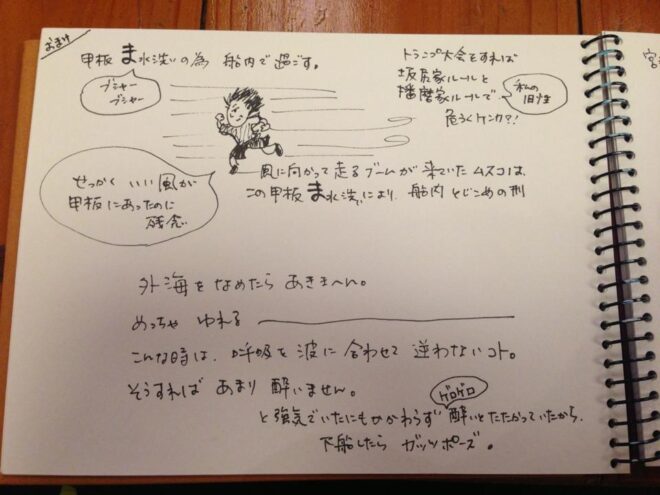 おまけ
甲板 ま水洗いの為 船内で過ごす。
ブシャー
ブシャー
トランプ大会をすれば
坂尻家ルールと
播磨家ルールで
私の
旧姓
危うくケンカ?!
風に向かって走るブームが来ていたムスコは、
この甲板ま水洗いにより、船内とじこめの刑
せっかくいい風が
甲板にあったのに
残念
外海をなめたらあきまへん。
めっちゃ ゆれる
こんな時は、呼吸を波に合わせて逆わないコト。
そうすればあまり酔いません。
ゲロゲロ
と強気でいたにもかかわらず酔いとたたかっていたから、
下船したらガッツポーズ。
宮